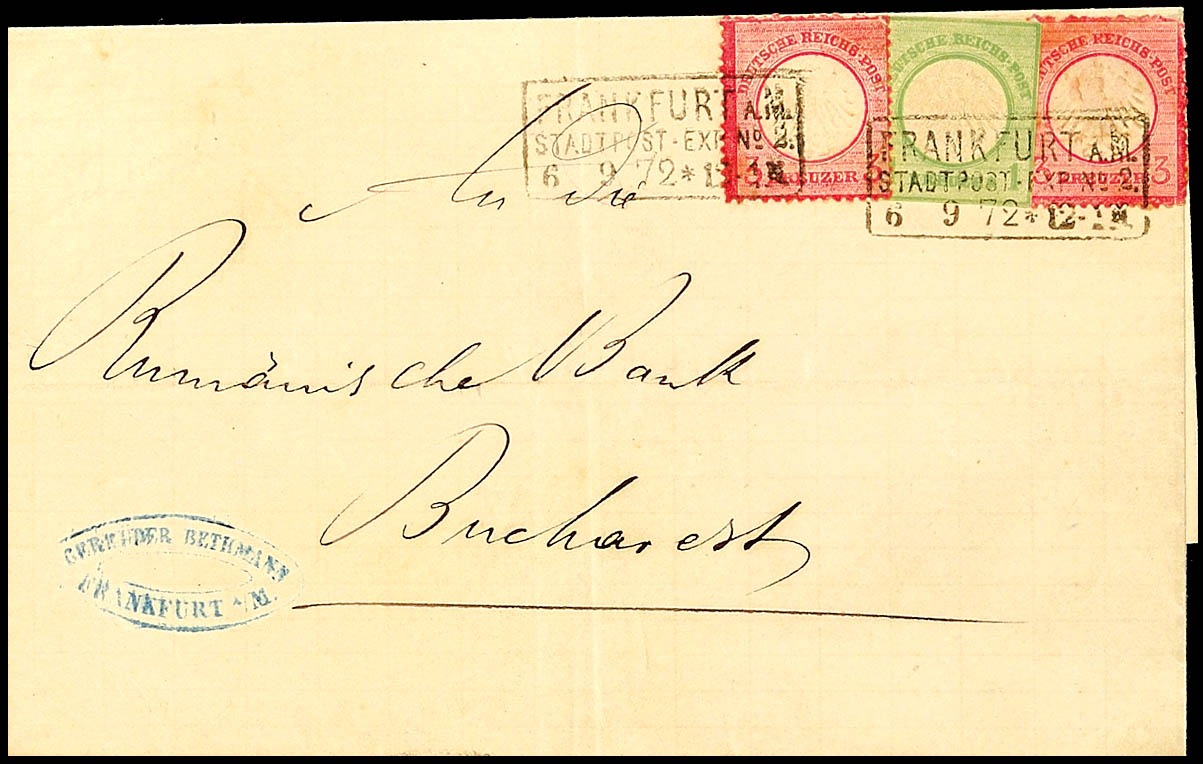 DEUTSCHE REICHS-POST
3 KREUZER 3
DEUTSCHE REICHS-POST
1
DEUTSCHE REICHS-POST
3 KREUZER 3
FRANKFURT A.M.
STADTPOST-EXP. No 2.
6 9 72 * 12-1 N
FRANKFURT A.M.
STADTPOST-EXP. No 2.
6 9 72 * 12-1 N
An die
Rumänische Bank
Bucharest
GEBRÜDER BETHMANN
FRANKFURT A/M.